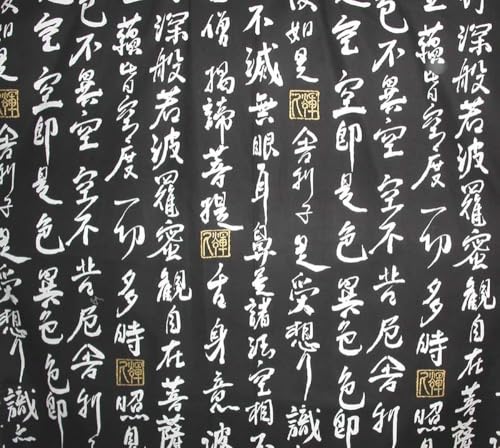 行深般若波羅蜜觀自在菩薩
蘊皆空度一切多時照見
色不異空空不苦厄舍利
是空空即是色異色色即
復如是舍利子是受想行識亦
不滅無眼耳鼻是諸法空相不
僧揭諦菩提舌身意波
行深般若波羅蜜觀自在菩薩
蘊皆空度一切多時照見
色不異空空不苦厄舍利
是空空即是色異色色即
如是舍利子是受想行識亦